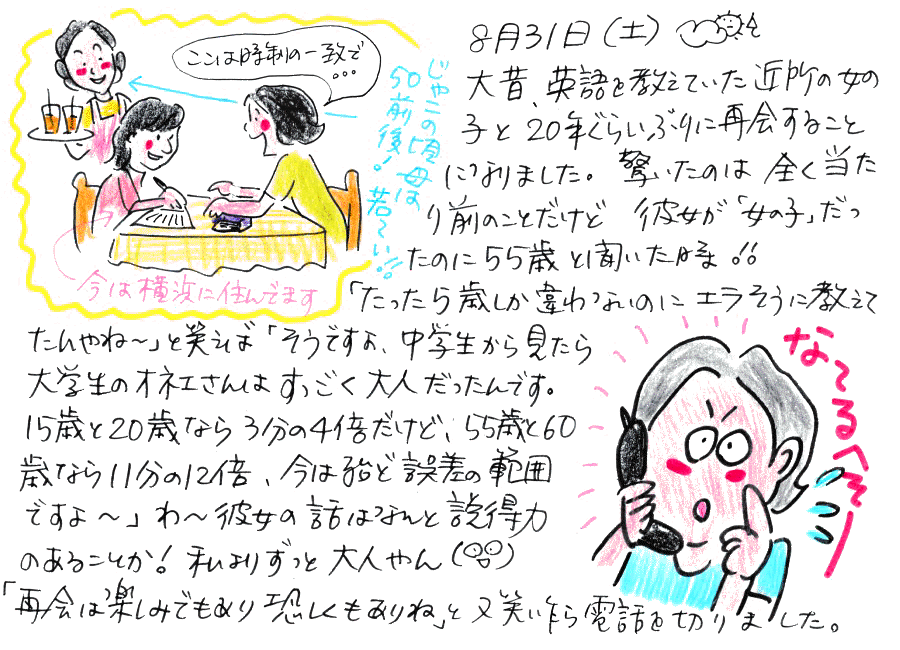 ここは時制の一致で
…
じゃこの頃母は
50前後!若〜い!!
今は横浜に住んでます
8月31日(土)
大昔、英語を教えていた近所の女の
子と20年ぐらいぶりに再会すること
になりました。驚いたのは全く当た
り前のことだけど 彼女が「女の子」だっ
たのに55歳と聞いた時!!
「たったら歳しか違わないのにエラそうに教えて
たんやね〜」と笑えば「そうですよ、中学生から見たら
大学生のオネエさんはすっごく大人だったんです。
15歳と20歳なら3分の4倍だけど、55歳と60
歳なら11分の12倍、今は殆ど誤差の範囲
ですよ〜」わ〜彼女の話はなんと説得力
のあることか!私よりずっと大人やん
「再会は楽しみでもあり恐しくもありね」と又笑いながら電話を切りました。
なーるへそー